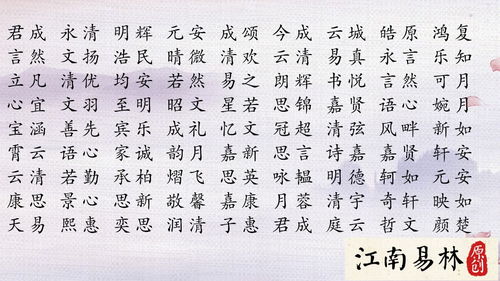 君成 永清 明辉 元安 成颂 今成 云城 皓原 鸿复
言然 文扬 浩民 晴微 清欢 云清 易真 永言 乐知
立凡 清优 均安 若然 易之 朗辉 书悦 言然 可月
心宜 文羽 至明 昭文 星若 思锦 嘉贤 语心 婉月
宝涵 善先 宾乐 成礼 忆文 冠超 清弦 风畔 新如
霄云 语心 家诚 韵月 嘉新 思言 诗贤 嘉贤 轩安
云清 若勤 承柏 熠飞 思英 咏韫 明德 轲如 元安
康思 景心 思新 敬馨 嘉康 月蓉 清宇 奇轩 映如
天易 熙惠 奕思 润清 子惠 君成 庭云 哲文 颜楚
江南易林
原创